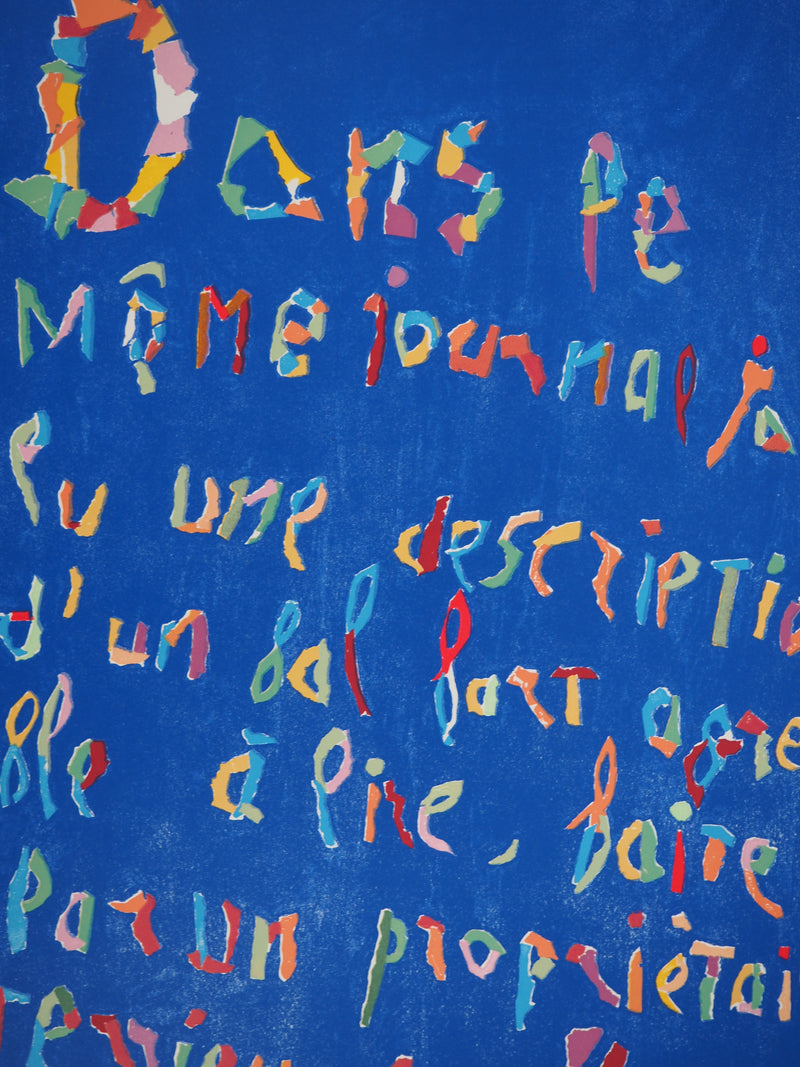 Dans le
Même journal j'a
lu une descriptio
d'un bal fort agré
ble à lire, faite
Par un propriétai
terrien